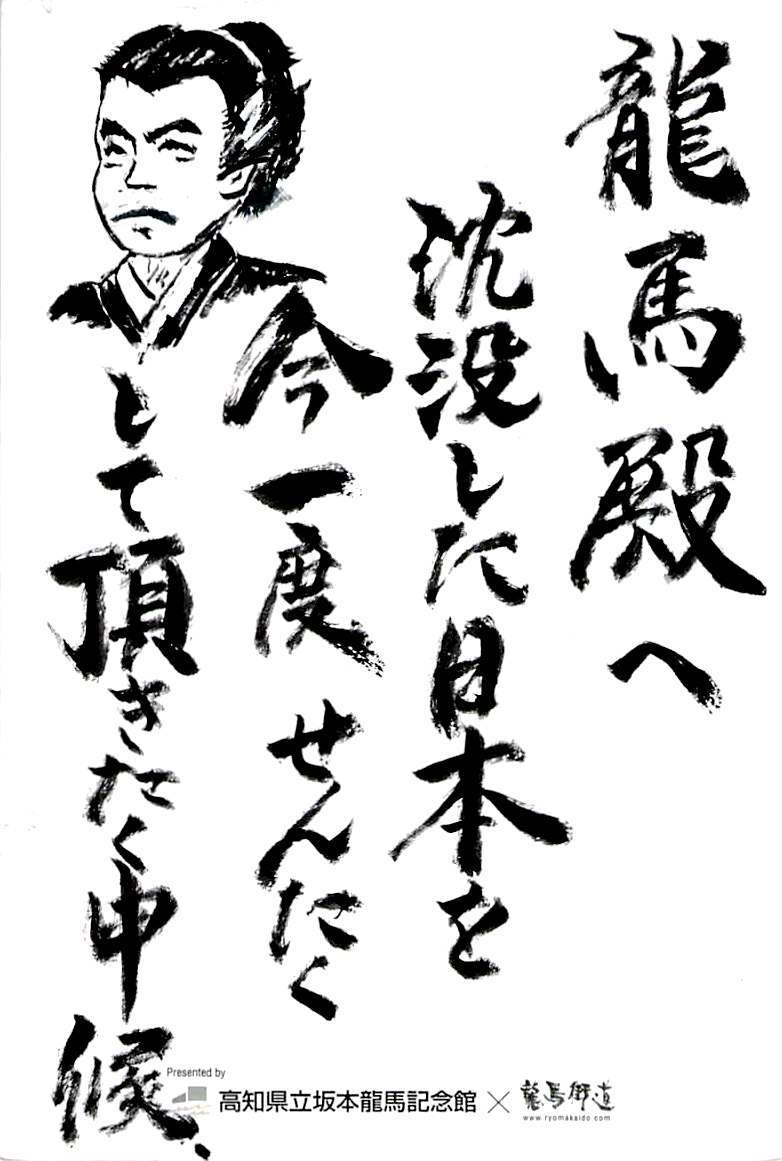 龍馬殿へ
沈没した日本を
今一度せんたく
して頂きたく申
候、
Presented by
高知県立坂本龍馬記念館 × 龍馬街道
www.ryomakaido.com